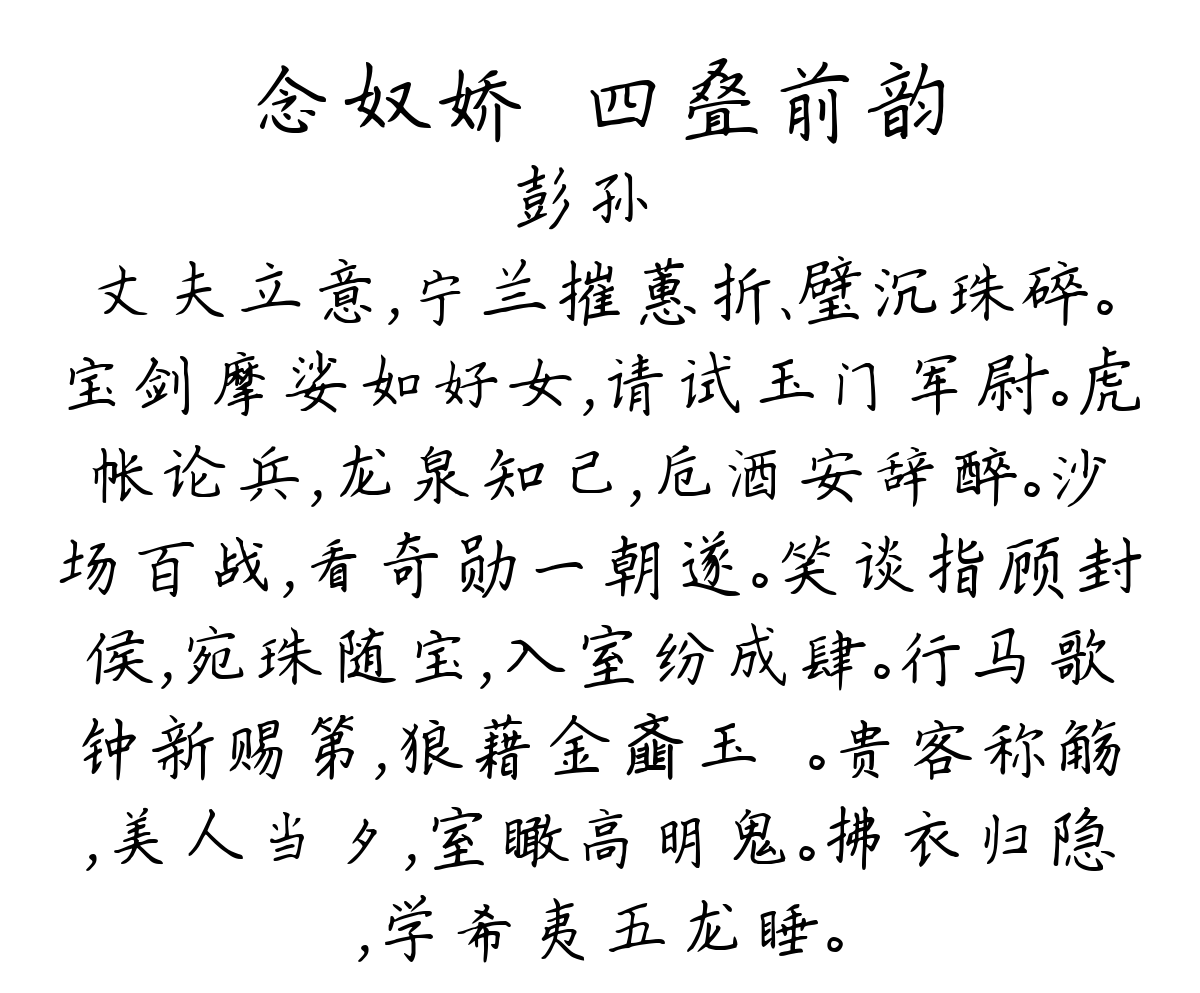 念奴娇 四叠前韵
彭孙
丈夫立意,宁兰摧蕙折、璧沉珠碎。
宝剑摩娑如好女,请试玉门军尉。虎
帐论兵,龙泉知己,卮酒安辞醉。沙
场百战,看奇勋一朝遂。笑谈指顾封
侯,宛珠随宝,入室纷成肆。行马歌
钟新赐第,狼藉金齑玉 。贵客称觞
,美人当夕,室瞰高明鬼。拂衣归隐
,学希夷五龙睡。